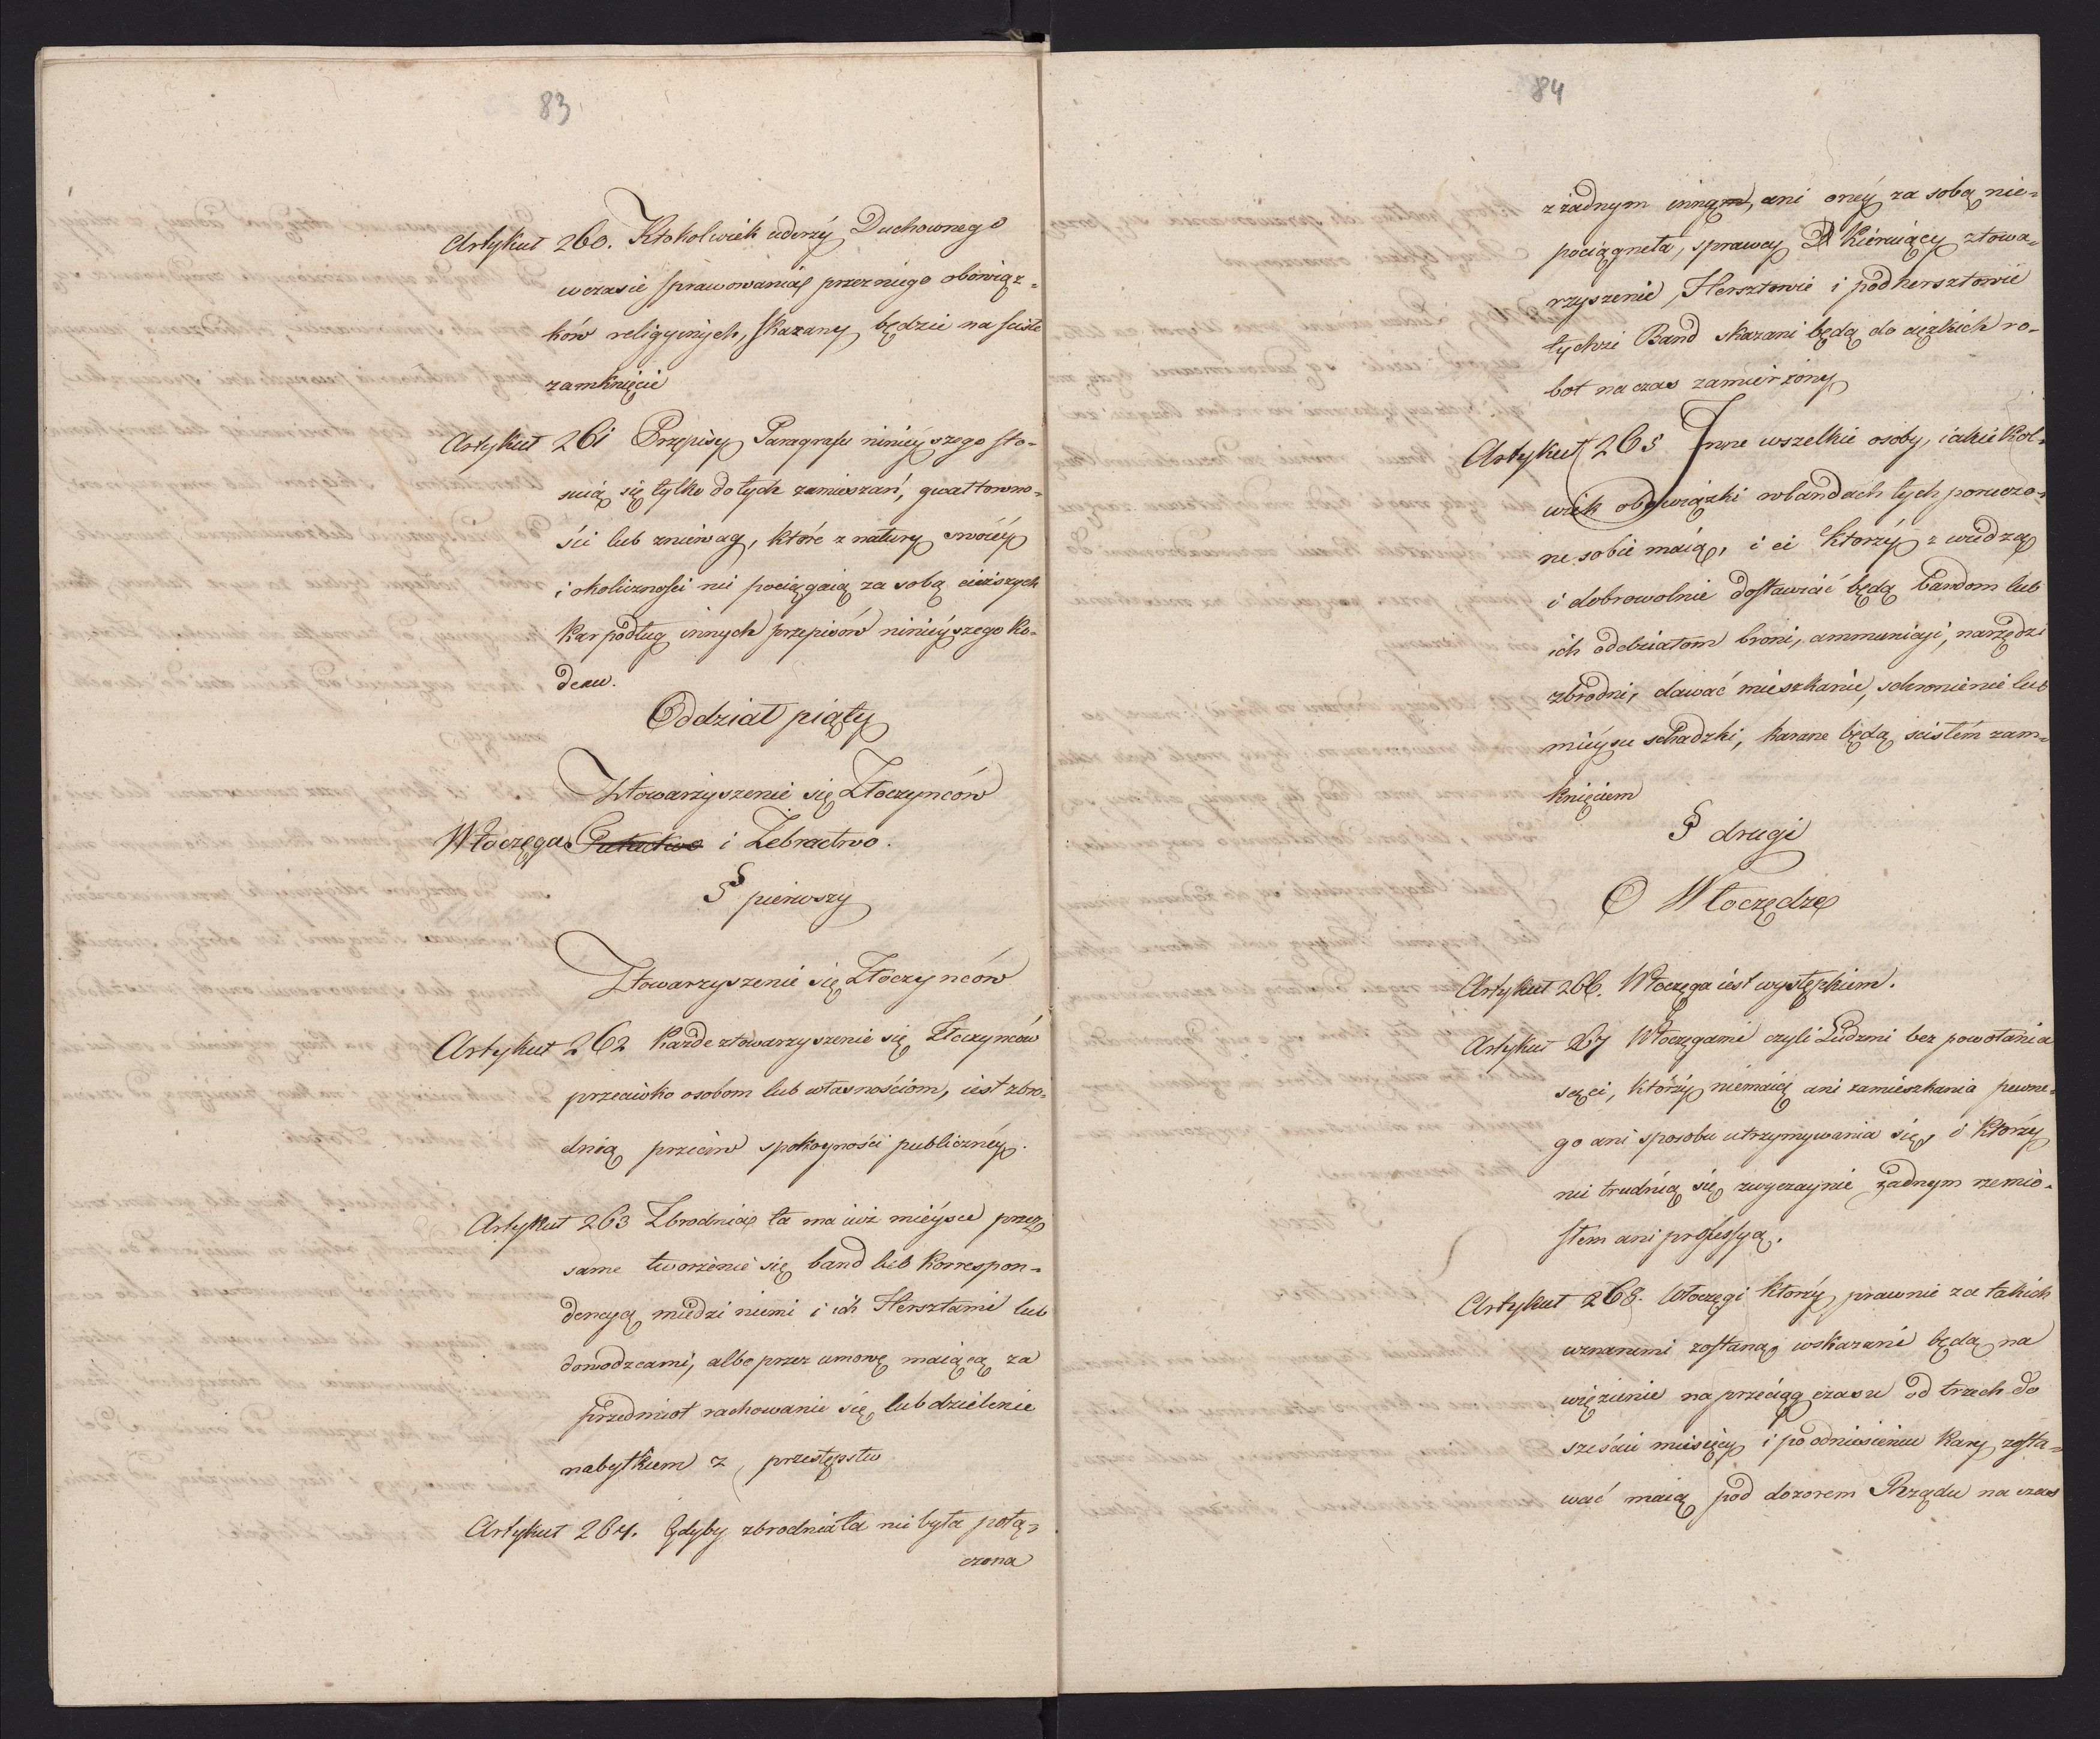 83
Artykuł 260. Ktokolwiek uderzy Duchownego
w czasie sprawowania przez niego obowiąz=
ków religyinych, skazany będzie na ścisłe
zamknięcie
Artykuł 261 Przepisy Paragrafu ninieyszego sto-
suią się tylko do tych zamieszań, gwałtowno-
ści lub zniewag, które z natury swoiéy
i okoliczności nie pociągaią za sobą cięższych
kar podług innych przepisów ninieyszego Ko-
dexu.
Oddział piąty
Stowarzyszenie się Złoczyńców
Włoczęga i Żebractwo.
§ pierwszy
Stowarzyszenie się Złoczyńców
Artykuł 262 Każde stowarzyszenie się Złoczyńców
przeciwko osobom lub własnościom, iest zbro-
dnią przeciw spokoyności publicznéy.
Artykuł 263 Zbrodnia ta ma iuż mieysce przez
same tworzenie się band lub korrespon-
dencyą miedzi niemi i ich Hersztami lub
dowodzcami, albo przez umowę maiącą za
przedmiot rachowanie się, lub dzielenie
nabytkiem z przestępstw
Artykuł 264. Gdyby zbrodnia ta nie była połą-
czona
84
z żadnym innym, ani onéy za sobą nie-
pociągneła, sprawcy Kieruiący stowa-
rzyszenie, Hersztowie i podhersztowie
tychże Band skazani będą do ciężkich ro-
bot na czas zamierzony
Artykuł 265 Inne wszelkie osoby, iakiekol-
wiek obowiązki w bandach tych poruczo-
ne sobie maią, i ci którzy z wiedzą
i dobrowolnie dostawiać będą bandom lub
ich oddziałom broni, ammunicyi, narzędzi
zbrodni, dawać mieszkanie, schronienie lub
mieysce schadzki, karane będą ścisłém zam-
knięciem
§ drugi
O Włoczędze
Artykuł 266. Włoczęga iest występkiem.
Artykuł 267 Włoczęgami czyli Ludzmi bez powołania
są ci, którzy niemaią ani zamieszkania pewne-
go ani sposobu utrzymywania się, i którzy
nie trudnią się zwyczaynie żadnym rzemio-
słem ani professyą.
Artykuł 268. Włoczęgi którzy prawnie za takich
uznanemi zostaną, wskazani będą na
więzienie na przeciąg czasu od trzech do
sześciu miesięcy i po odniesieniu kary zosta-
wać maią pod dozorem Rządu na czas